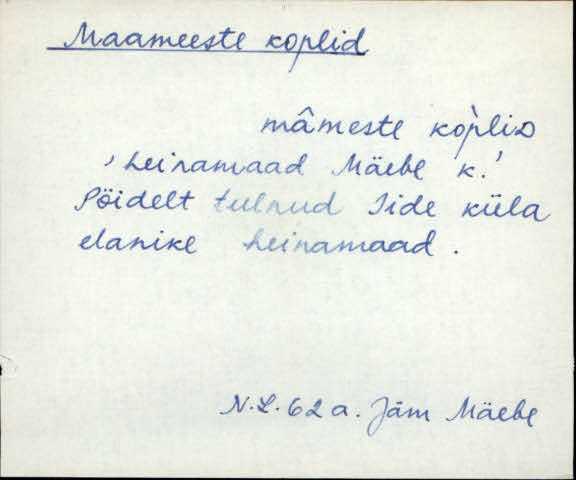 Maameeste koplid
mâmeste kòplıᴅ
'heinamaad Mäebe k.'
Pöidelt tulnud Iide küla
elanike heinamaad.
N.L. 62 a. Jäm Mäebe